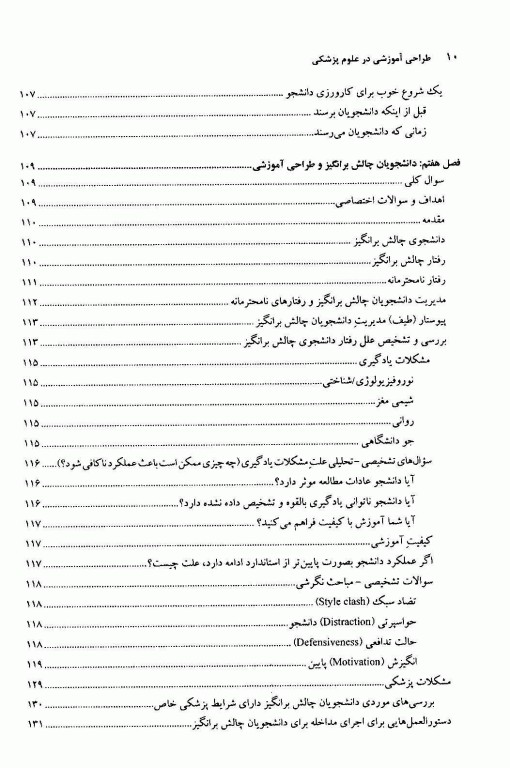 ۱۰    طراحی آموزشی در علوم پزشکی
یک شروع خوب برای کارورزی دانشجو ........ ۱۰۷
قبل از اینکه دانشجویان برسند ........ ۱۰۷
زمانی که دانشجویان می‌رسند ........ ۱۰۷
فصل هفتم: دانشجویان چالش برانگیز و طراحی آموزشی ........ ۱۰۹
سوال کلی ........ ۱۰۹
اهداف و سوالات اختصاصی ........ ۱۰۹
مقدمه ........ ۱۱۰
دانشجوی چالش برانگیز ........ ۱۱۰
رفتار چالش برانگیز ........ ۱۱۰
رفتار نامحترمانه ........ ۱۱۱
مدیریت دانشجویان چالش برانگیز و رفتارهای نامحترمانه ........ ۱۱۲
پیوستار (طیف) مدیریتِ دانشجویان چالش برانگیز ........ ۱۱۳
بررسی و تشخیص علل رفتار دانشجوی چالش برانگیز ........ ۱۱۳
مشکلات یادگیری ........ ۱۱۵
نوروفیزیولوژی/شناختی ........ ۱۱۵
شیمی مغز ........ ۱۱۵
روانی ........ ۱۱۵
جو دانشگاهی ........ ۱۱۵
سؤال‌های تشخیصی - تحلیلی علتِ مشکلات یادگیری (چه چیزی ممکن است باعث عملکرد ناکافی شود؟) ...... ۱۱۶
آیا دانشجو عادات مطالعه موثر دارد؟ ........ ۱۱۶
آیا دانشجو ناتوانی یادگیری بالقوه و تشخیص داده نشده دارد؟ ........ ۱۱۶
آیا شما آموزش با کیفیت فراهم می‌کنید؟ ........ ۱۱۷
کیفیتِ آموزشی ........ ۱۱۷
اگر عملکرد دانشجو بصورت پایین‌تر از استاندارد ادامه دارد، علت چیست؟ ........ ۱۱۷
سوالات تشخیصی - مباحث نگرشی ........ ۱۱۸
تضاد سبک (Style clash) ........ ۱۱۸
حواسپرتی (Distraction) دانشجو ........ ۱۱۸
حالت تدافعی (Defensiveness) ........ ۱۱۸
انگیزش (Motivation) پایین ........ ۱۱۹
مشکلات پزشکی ........ ۱۲۹
بررسی‌های موردی دانشجویان چالش برانگیز دارای شرایط پزشکی خاص ........ ۱۳۰
دستورالعمل‌هایی برای اجرای مداخله برای دانشجویان چالش برانگیز ........ ۱۳۱